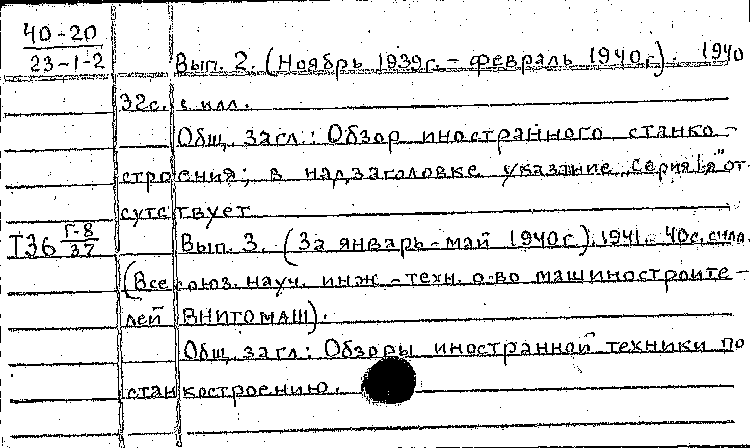 40-20
23-1-2
Вып. 2. (Ноябрь 1939г. – февраль 1940г.). 1940
32с. с илл.
Общ. загл.: Обзор иностранного станко-
строения; в надзаголовке указание „серия I-я" от-
сутствует
Т36 Г-8
37
Вып. 3. (За январь-май 1940г.). 1941. 40с. с илл.
(Всесоюз. науч. инж.-техн. о-во машиностроите-
лей ВНИТОМАШ).
Общ. загл.: Обзоры иностранной техники по
станкостроению.